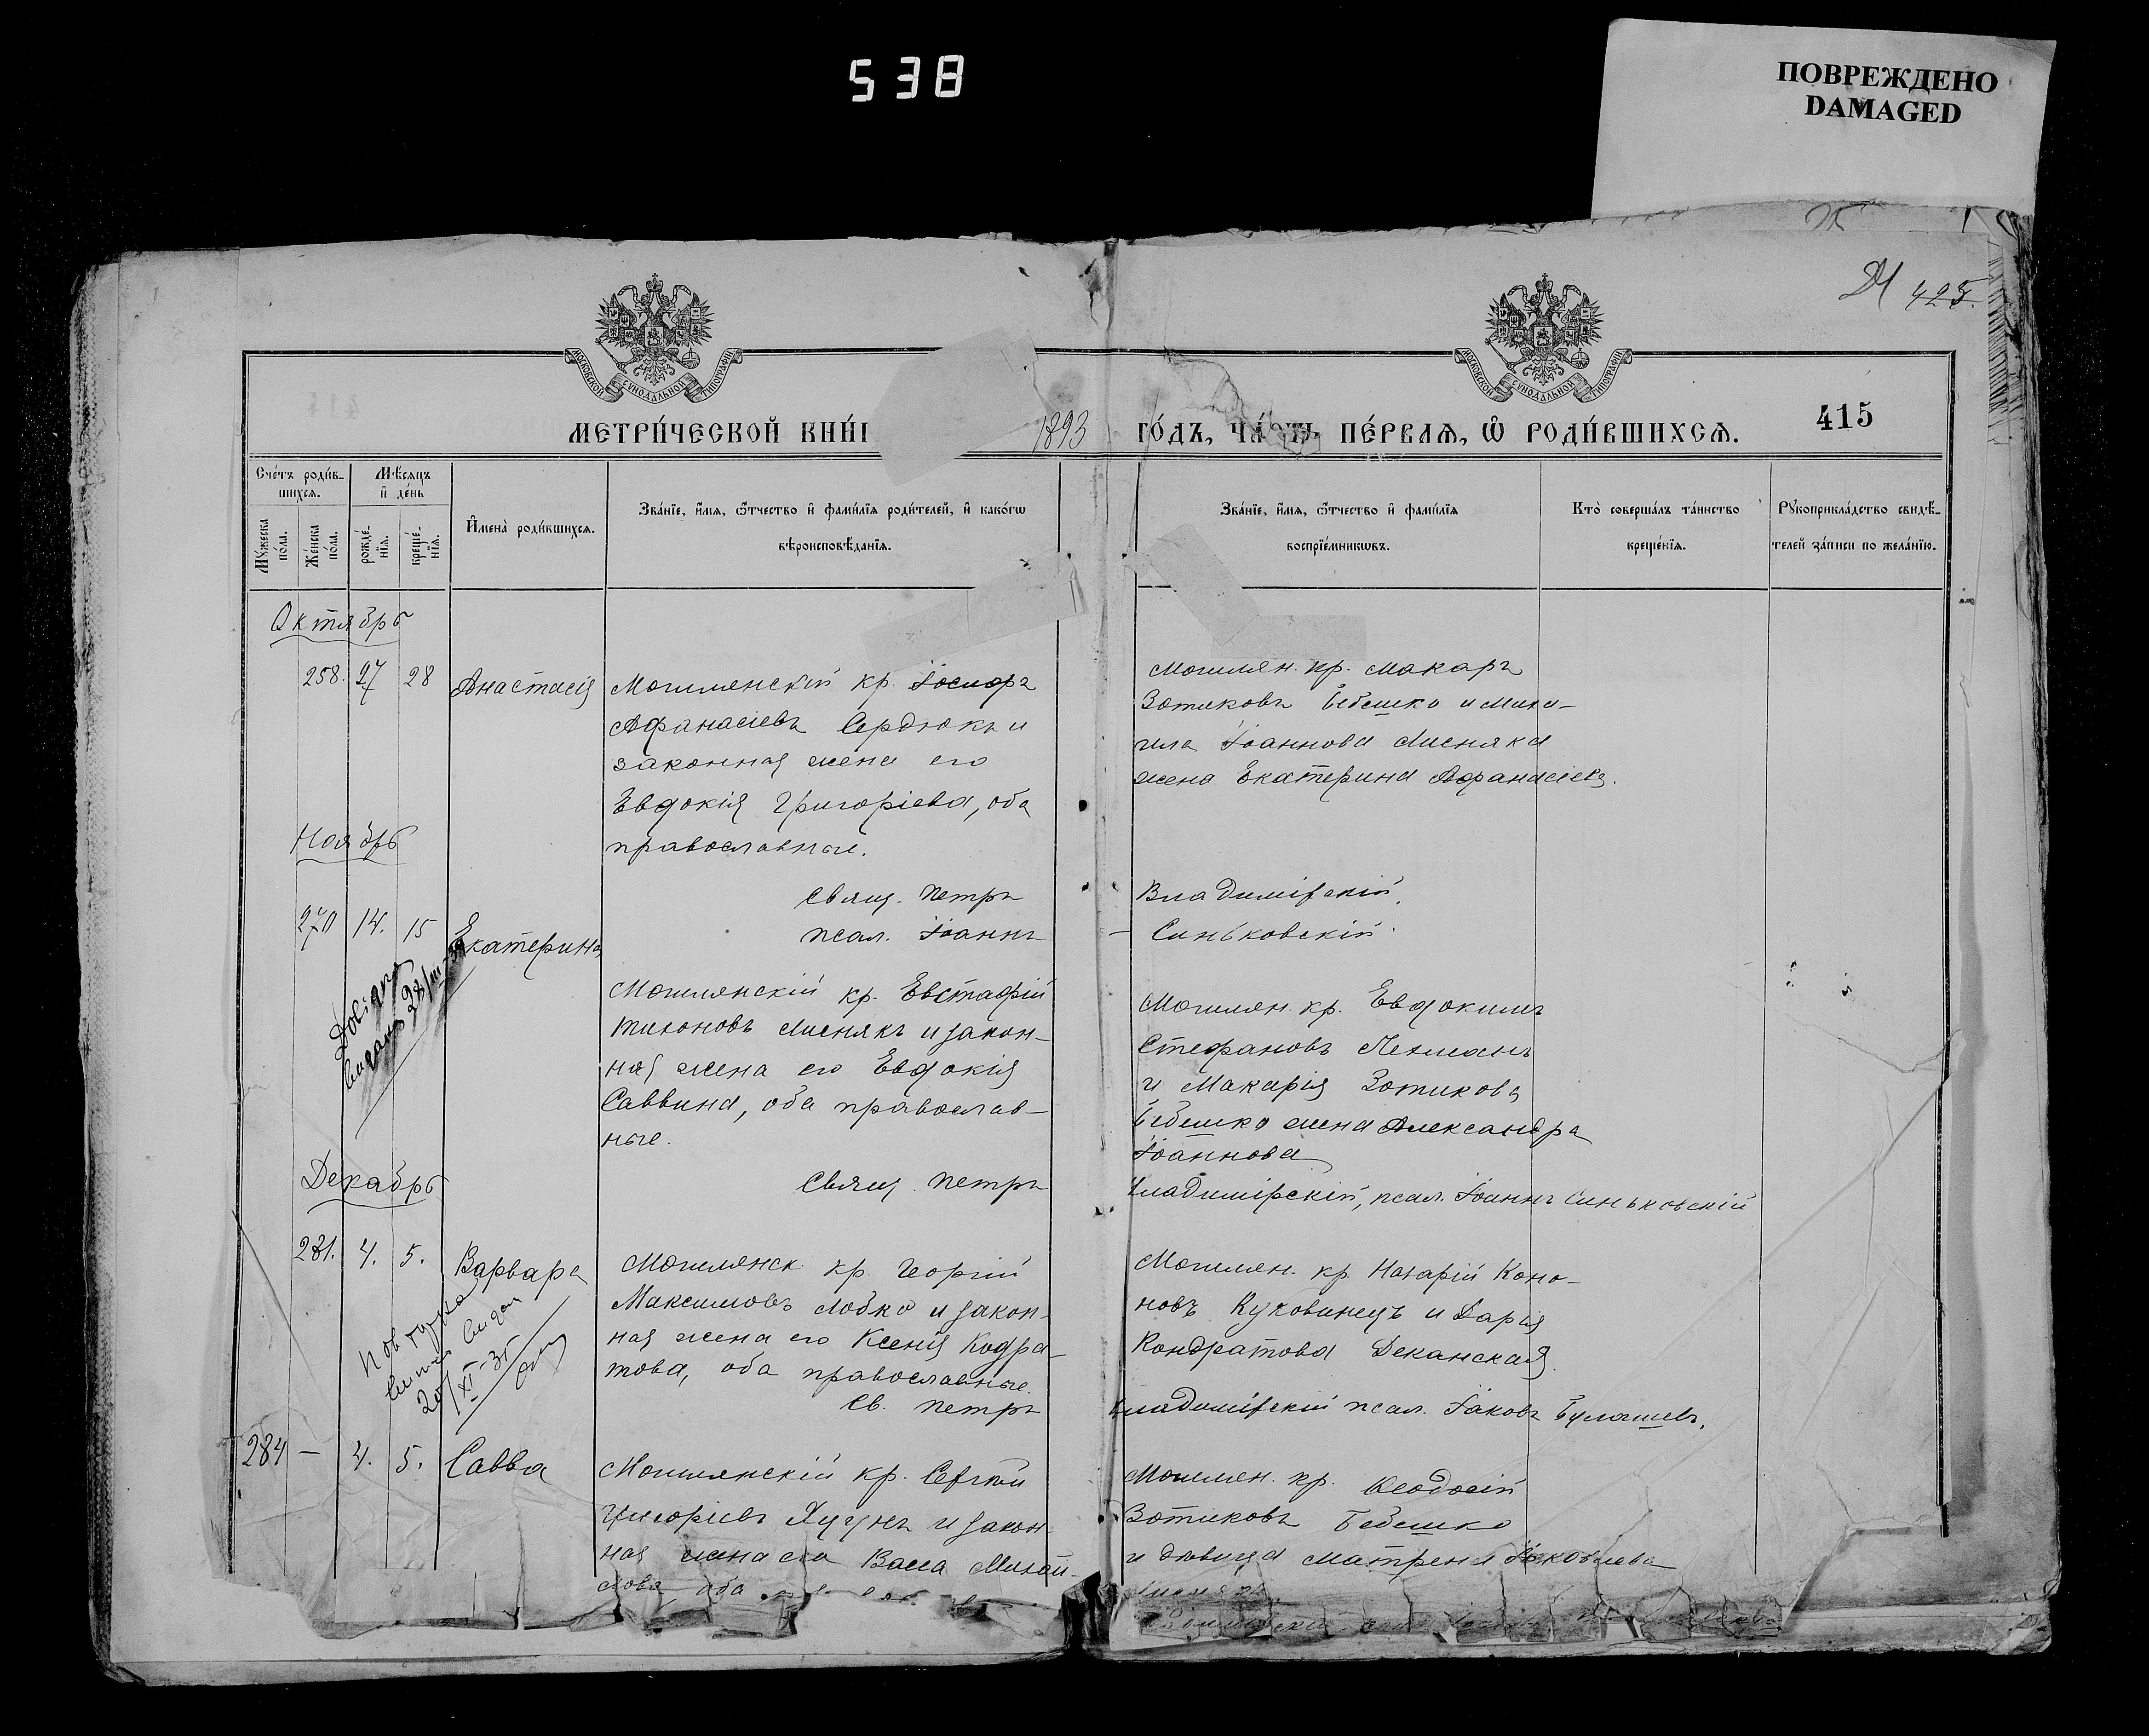 538
ПОВРЕЖДЕНО
DAMAGED
М 425.
МОСКОВСКОЙ СУНОДАЛЬНОЙ ТИПОГРАФІИ
МОСКОВСКОЙ СУНОДАЛЬНОЙ ТИПОГРАФІИ
МЕТРИ́ЧЕСКОЙ КНИ́Г 1893 ГО́ДЪ, ЧА́СТЬ ПЕ́РВАѦ, Ѽ РОДИ́ВШИХСѦ. 415
Сче́тъ роди́в-
шихсѧ.
Мѣ́сѧцъ
и҆ де́нь
Мꙋ́жеска по́ла.
Же́нска по́ла.
рожде́-
нїѧ.
креще́-
нїѧ.
И҆мена̀ роди́вшихсѧ.
Зва́нїе, и҆́мѧ, ѻ҆́тчество и҆ фами́лїѧ роди́телей, и҆ како́гѡ
вѣроисповѣ́данїѧ.
Зва́нїе, и҆́мѧ, ѻ҆́тчество и҆ фами́лїѧ
воспрїе́мникѡвъ.
Кто̀ соверша́лъ та́инство
креще́нїѧ.
Рꙋкоприкла́дство свидѣ́-
телей за́писи по жела́нїю.
Октябрь
258. 27 28 Анастасія
Могилянскій кр. Іосифъ
Афанасіевъ Сердюкъ и
законная жена его
Евдокія Григоріева, оба
православные.
Могилян. кр. Макаръ
Зотиковъ Бебешко и Миха-
ила Іоаннова Лисняка
жена Екатерина Афанасіева.
Свящ. Петръ Владимірскій,
псал. Іоаннъ Синьковскій.
Ноябрь
270 14. 15 Екатерина
Могилянскій кр. Евстафій
Тихоновъ Лиснякъ и закон-
ная жена его Евдокія
Саввина, оба православ-
ные.
Могилян. кр. Евдокимъ
Стефановъ
и Макарія Зотикова
Бебешко жена Александра
Іоаннова
Свящ. Петръ Владимірскій, псал. Іоаннъ Синьковскій
Декабрь
281. 4. 5. Варвара
20/XI-35
Могилянск. кр. Георгій
Максимовъ Лобко и закон-
ная жена его Ксенія Кодра-
това, оба православные.
Могилян. кр. Назарій Коно-
новъ Куковинецъ и Дарія
Кондратова Деканская.
Св. Петръ Владимірскій псал. Іаковъ
284 — 4. 5. Савва
Могилянскій кр. Сергій
Григоріевъ и закон-
ная жена его Васса Михай-
лова оба
Могилян. кр. Ѳеодосій
Зотиковъ Бебешко
и дѣвица Матрена Яковлева